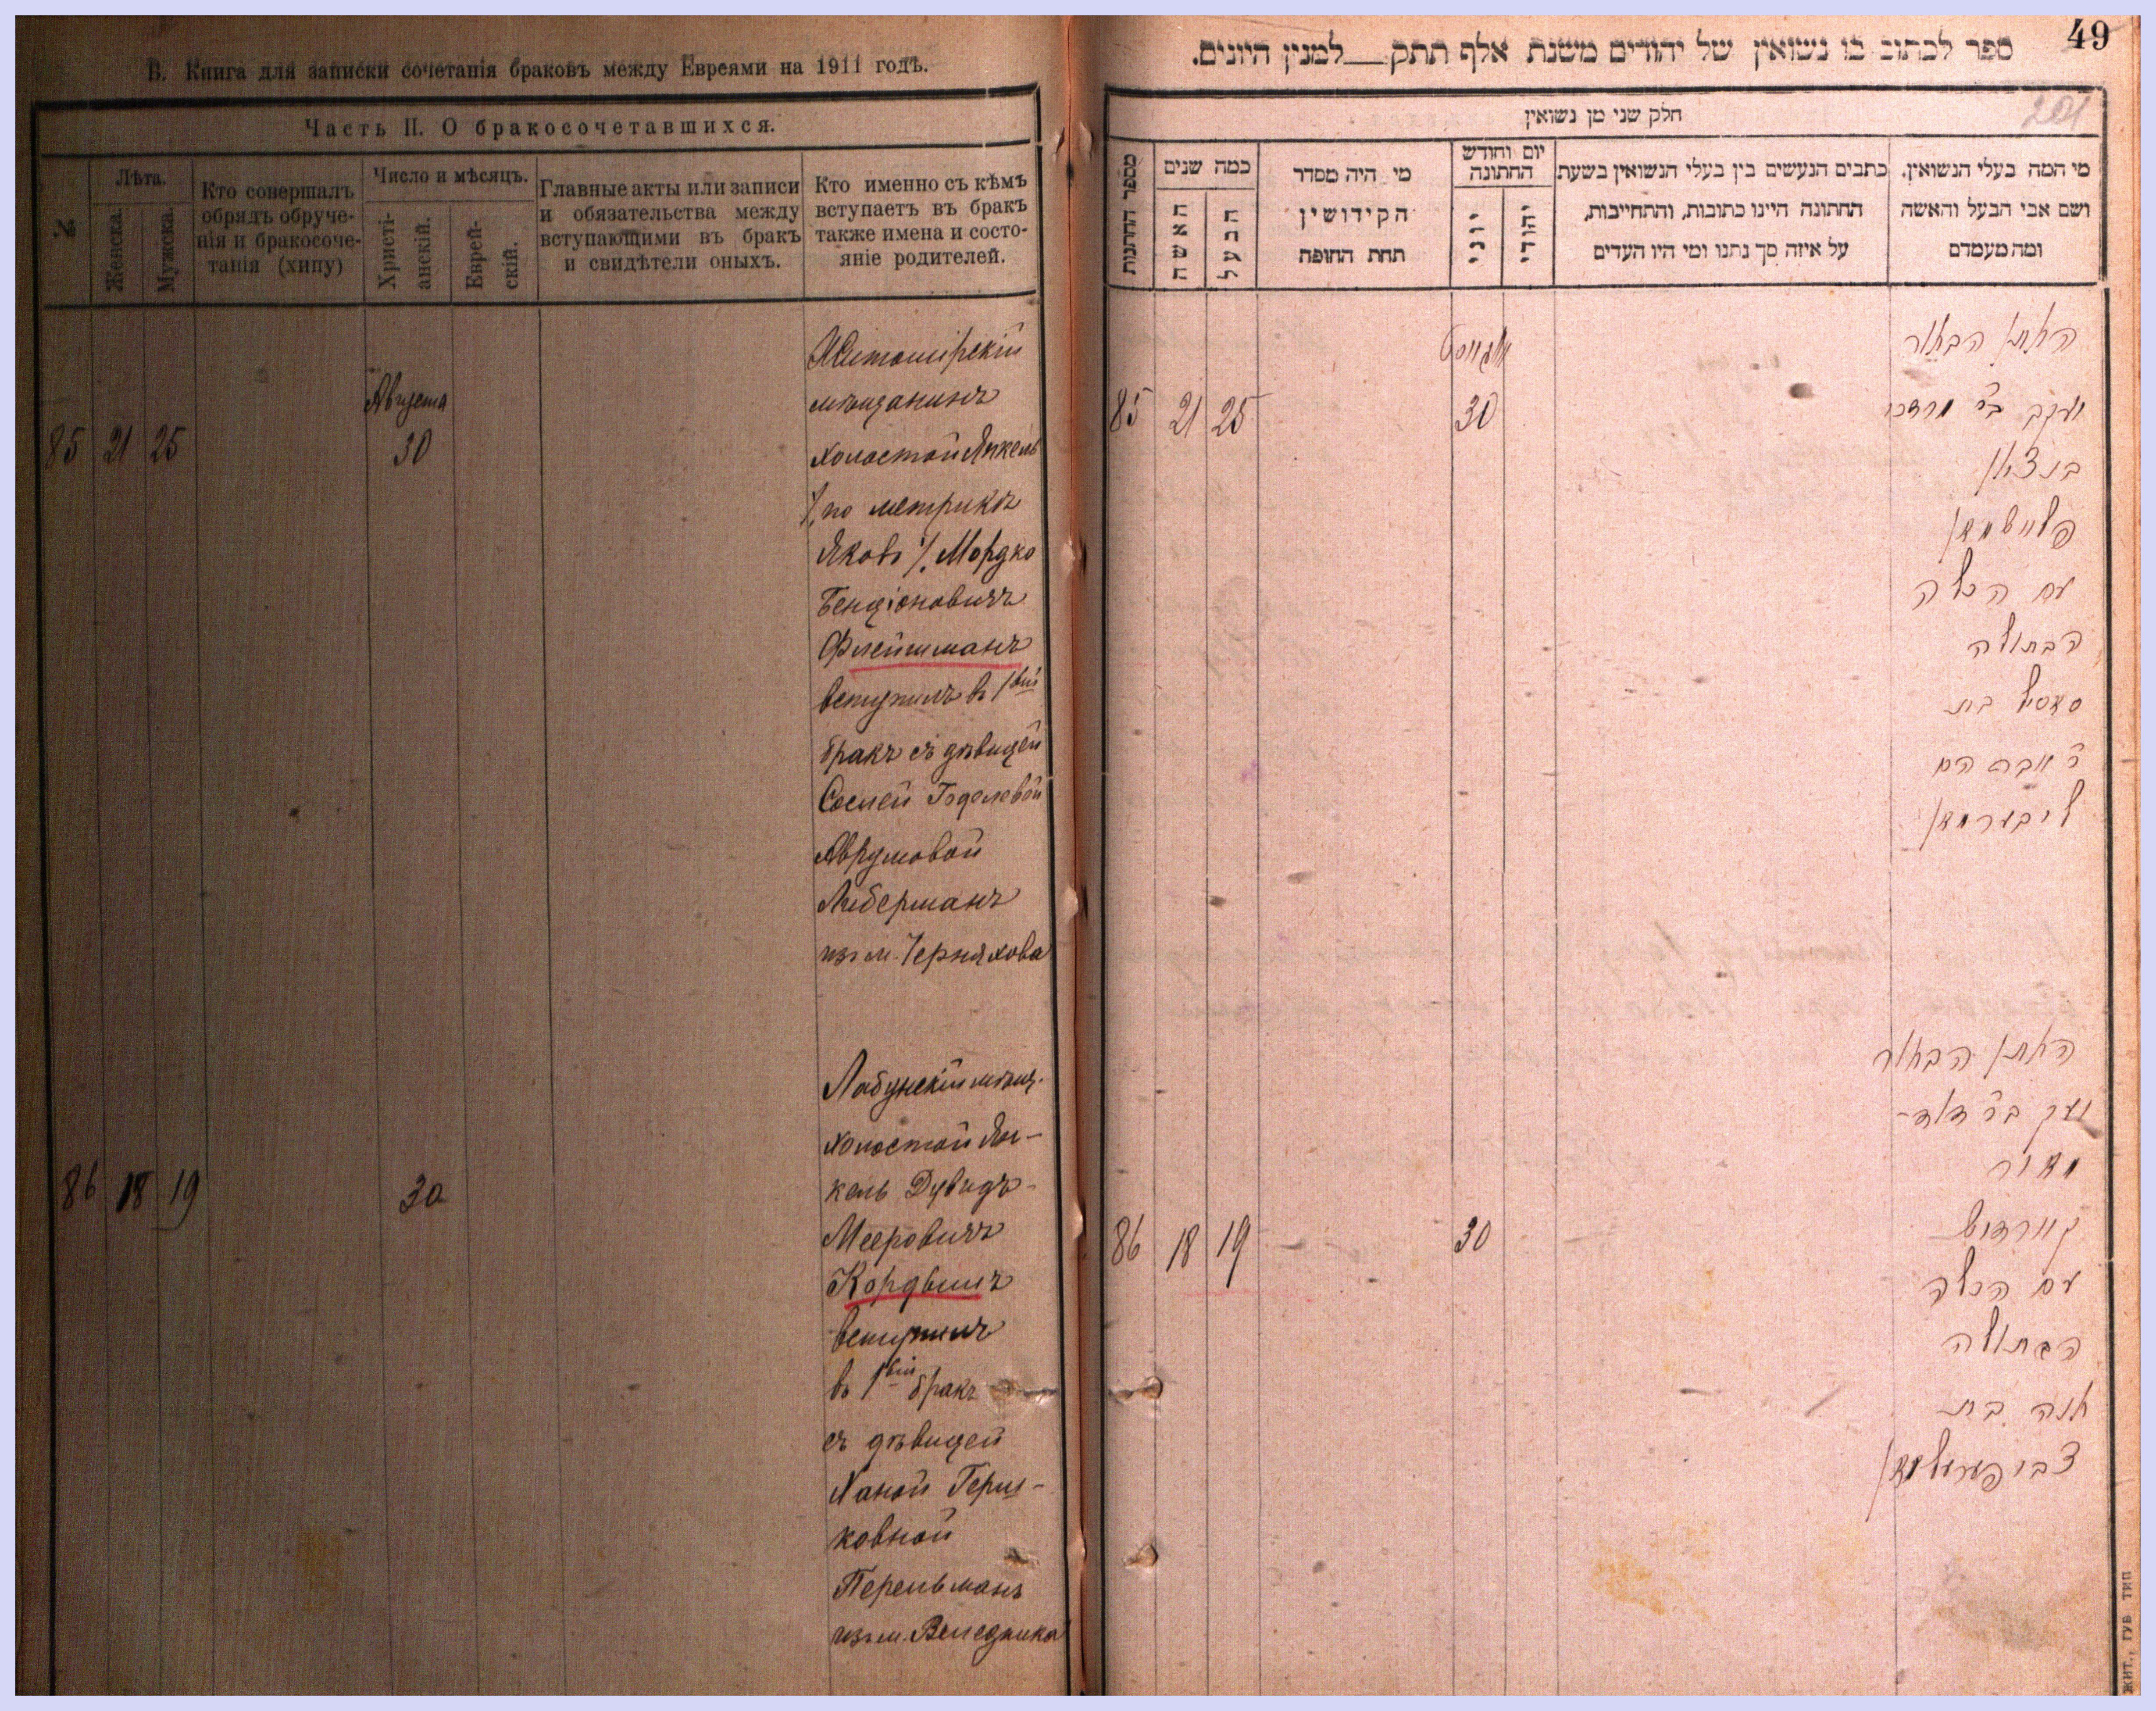 В. Книга для записки сочетанія браковъ между Евреями на 1911 годъ.
Часть II. О бракосочетавшихся.
№
Лѣта.
Женска.
Мужска.
Кто совершалъ
обрядъ обруче-
нія и бракосоче-
танія (хипу)
Число и мѣсяцъ.
Христі-
анскій.
Еврей-
скій.
Главные акты или записи
и обязательства между
вступающими въ бракъ
и свидѣтели оныхъ.
Кто именно съ кѣмъ
вступаетъ въ бракъ
также имена и состо-
яніе родителей.
85 21 25
Августа
30
Житомірскій
мѣщанинъ
холостой Янкель
/по метрикѣ
Яковъ/. Мордко
Бенціоновичъ
Флейшманъ
вступилъ въ 1вый
бракъ съ дѣвицей
Сослей Годелевой
Аврумовой
Либерманъ
изъ м. Черняхова
86 18 19
30
Лабунскій мѣщ.
холостой Ян-
кель Дувидъ-
Мееровичъ
Кордышъ
вступилъ
въ 1вый бракъ
съ дѣвицей
Ханой Герш-
ковной
Перельманъ
изъ м. Веледника
49
201
ספר לכתוב בו נשואין של יהודים משנת אלף תתק__למנין היונים.
חלק שני מן נשואין
מספר החתונות
כמה שנים
האשה
הבעל
מי היה מסדר
הקידושין
תחת החופה
יום וחודש
החתונה
יוני
יהודי
כתבים הנעשים בין בעלי הנשואין בשעת
החתונה היינו כתובות, והתחייבות,
על איזה סך נתנו ומי היו העדים
מי המה בעלי הנשואין.
ושם אבי הבעל והאשה
ומה מעמדם
85 21 25
אוגוסט
30
האתן הבאור
יעקב ב״ר מרדכי
בנציאן
פליישמאן
עם הכלה
הבתולה
סאסיל בת
ר׳ אברהם
ליבערמאן
86 18 19
30
האתן הבאור
יעקב ב״ר דוד-
מאיר
קורדיש
עם הכלה
הבתולה
אנה בת
צבי פערעלמאן
ЖИТ., ГУБ ТИП